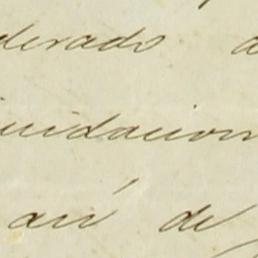 derado a
uidacion
así de